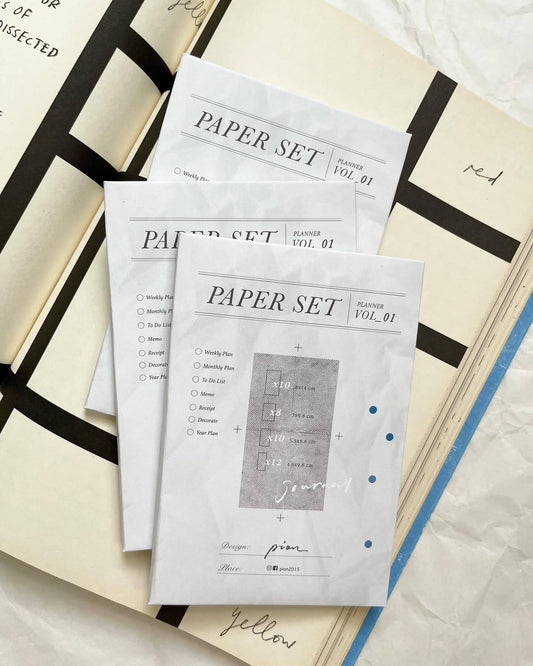 OR
S OF
DISSECTED
yellow
red
PAPER SET
PLANNER
VOL_01
Weekly Plan
PAPER SET
PLANNER
VOL_01
Weekly Plan
Monthly Plan
To Do List
Memo
Receipt
Decorate
Year Plan
PAPER SET
PLANNER
VOL_01
Weekly Plan
Monthly Plan
To Do List
Memo
Receipt
Decorate
Year Plan
x10
x8
x10
x12
journal
Design: pian
Place: pian2015
yellow